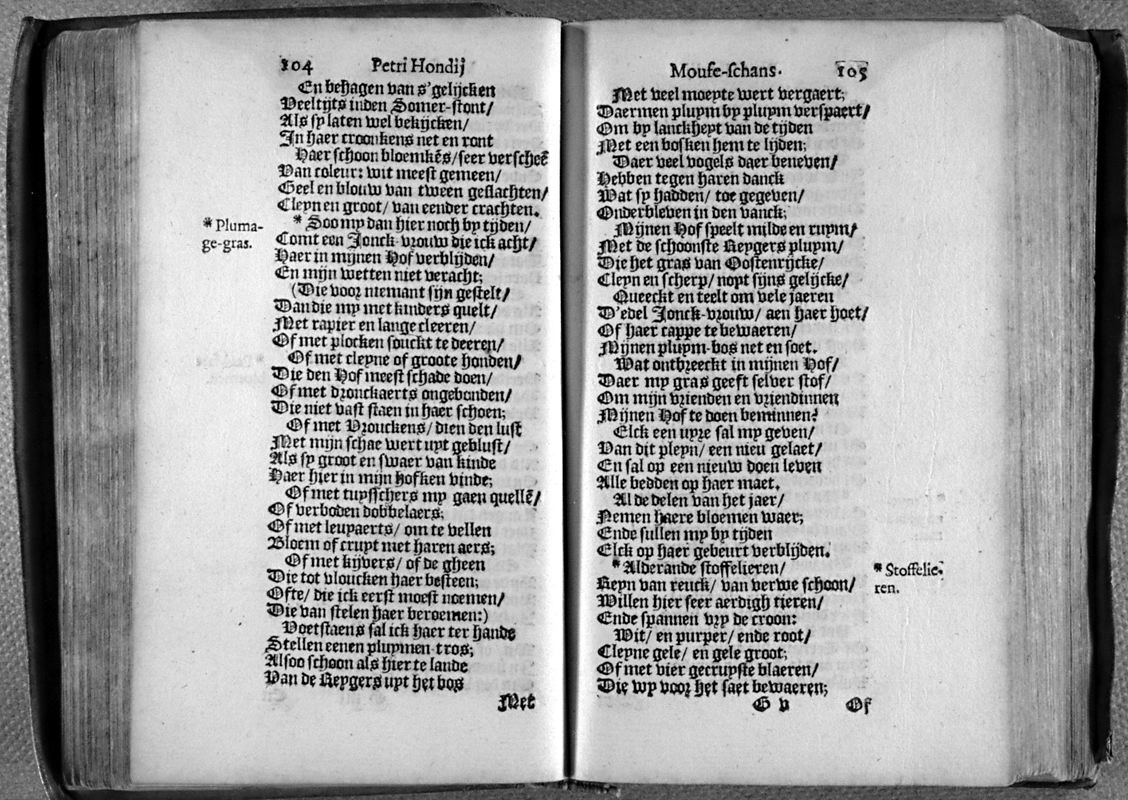 104 Petri Hondij
En behagen van s'gelijcken
Veeltijts inden Somer-stont/
Als sy laten wel bekijcken/
In haer croonkens net en ront
Haer schoon bloemkẽs/seer verscheẽ
Van coleur: wit meest gemeen/
Geel en blouw van tween geslachten/
Cleyn en groot/ van eender crachten.
* Pluma-
ge-gras.
* Soo my dan hier noch by tijden/
Comt een Jonck-vrouw die ick acht/
Haer in mijnen Hof verblijden/
En mijn wetten niet veracht;
(Die voor niemant sijn gestelt/
Dan die my met kinders quelt/
Met rapier en lange cleeren/
Of met plocken souckt te deeren/
Of met cleyne of groote honden/
Die den Hof meest schade doen/
Of met dronckaerts ongebonden/
Die niet vast staen in haer schoen;
Of met Vrouckens/ dien den lust
Met mijn schae wert uyt geblust/
Als sy groot en swaer van kinde
Haer hier in mijn hofken vinde;
Of met tuysschers my gaen quellẽ/
Of verboden dobbelaers;
Of met leupaerts/ om te vellen
Bloem of cruyt met haren aers;
Of met kijvers/ of de gheen
Die tot vloucken haer besteen;
Ofte/ die ick eerst moest noemen/
Die van stelen haer beroemen:)
Voetstaens sal ick haer ter hande
Stellen eenen pluymen-tros;
Alsoo schoon als hier te lande
Van de Reygers uyt het bos
Met
Mouse-schans. 105
Met veel moeyte wert vergaert;
Daermen pluym by pluym verspaert/
Om by lanckheyt van de tijden
Met een bosken hem te lijden;
Daer veel vogels daer beneven/
Hebben tegen haren danck
Wat sy hadden/ toe gegeven/
Onderbleven in den vanck;
Mijnen Hof speelt milde en ruym/
Met de schoonste Reygers pluym/
Die het gras van Oostenrijcke/
Cleyn en scherp/ nopt sijns gelijcke/
Queeckt en teelt om vele jaeren
D'edel Jonck-vrouw/ aen haer hoet/
Of haer cappe te bewaeren/
Mijnen pluym-bos net en soet.
Wat ontbreeckt in mijnen Hof/
Daer my gras geeft selver stof/
Om mijn vrienden en vriendinnen
Mijnen Hof te doen beminnen?
Elck een uyre sal my geven/
Van dit pleyn/ een nieu gelaet/
En sal op een nieuw doen leven
Alle bedden op haer maet.
Al de delen van het jaer/
Nemen haere bloemen waer;
Ende sullen my by tijden
Elck op haer gebeurt verblijden.
* Alderande stoffelieren/
* Stoffelie-
ren.
Reyn van reuck/ van verwe schoon/
Willen hier seer aerdigh tieren/
Ende spannen vry de croon:
Wit/ en purper/ ende root/
Cleyne gele/ en gele groot;
Of met vier gecruyste blaeren/
Die wy voor het saet bewaeren;
G v Of